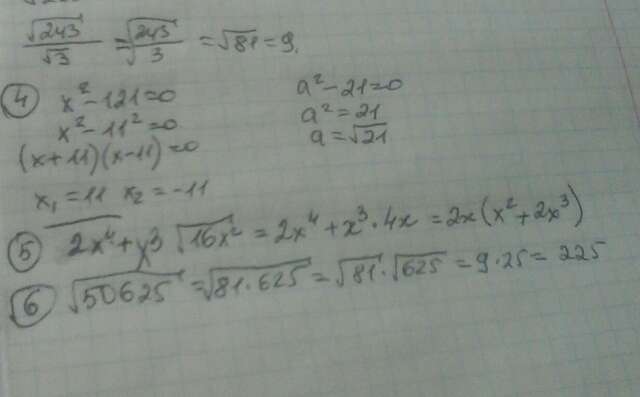 √243/√3 = √243/3 = √81 = 9.
④ x² - 121 = 0
x² - 11² = 0
(x + 11)(x - 11) = 0
x₁ = 11 x₂ = -11
a² - 21 = 0
a² = 21
a = √21
⑤ 2x⁴ + y³ √16x² = 2x⁴ + x³ · 4x = 2x(x² + 2x³)
⑥ √50625 = √81·625 = √81 · √625 = 9 · 25 = 225